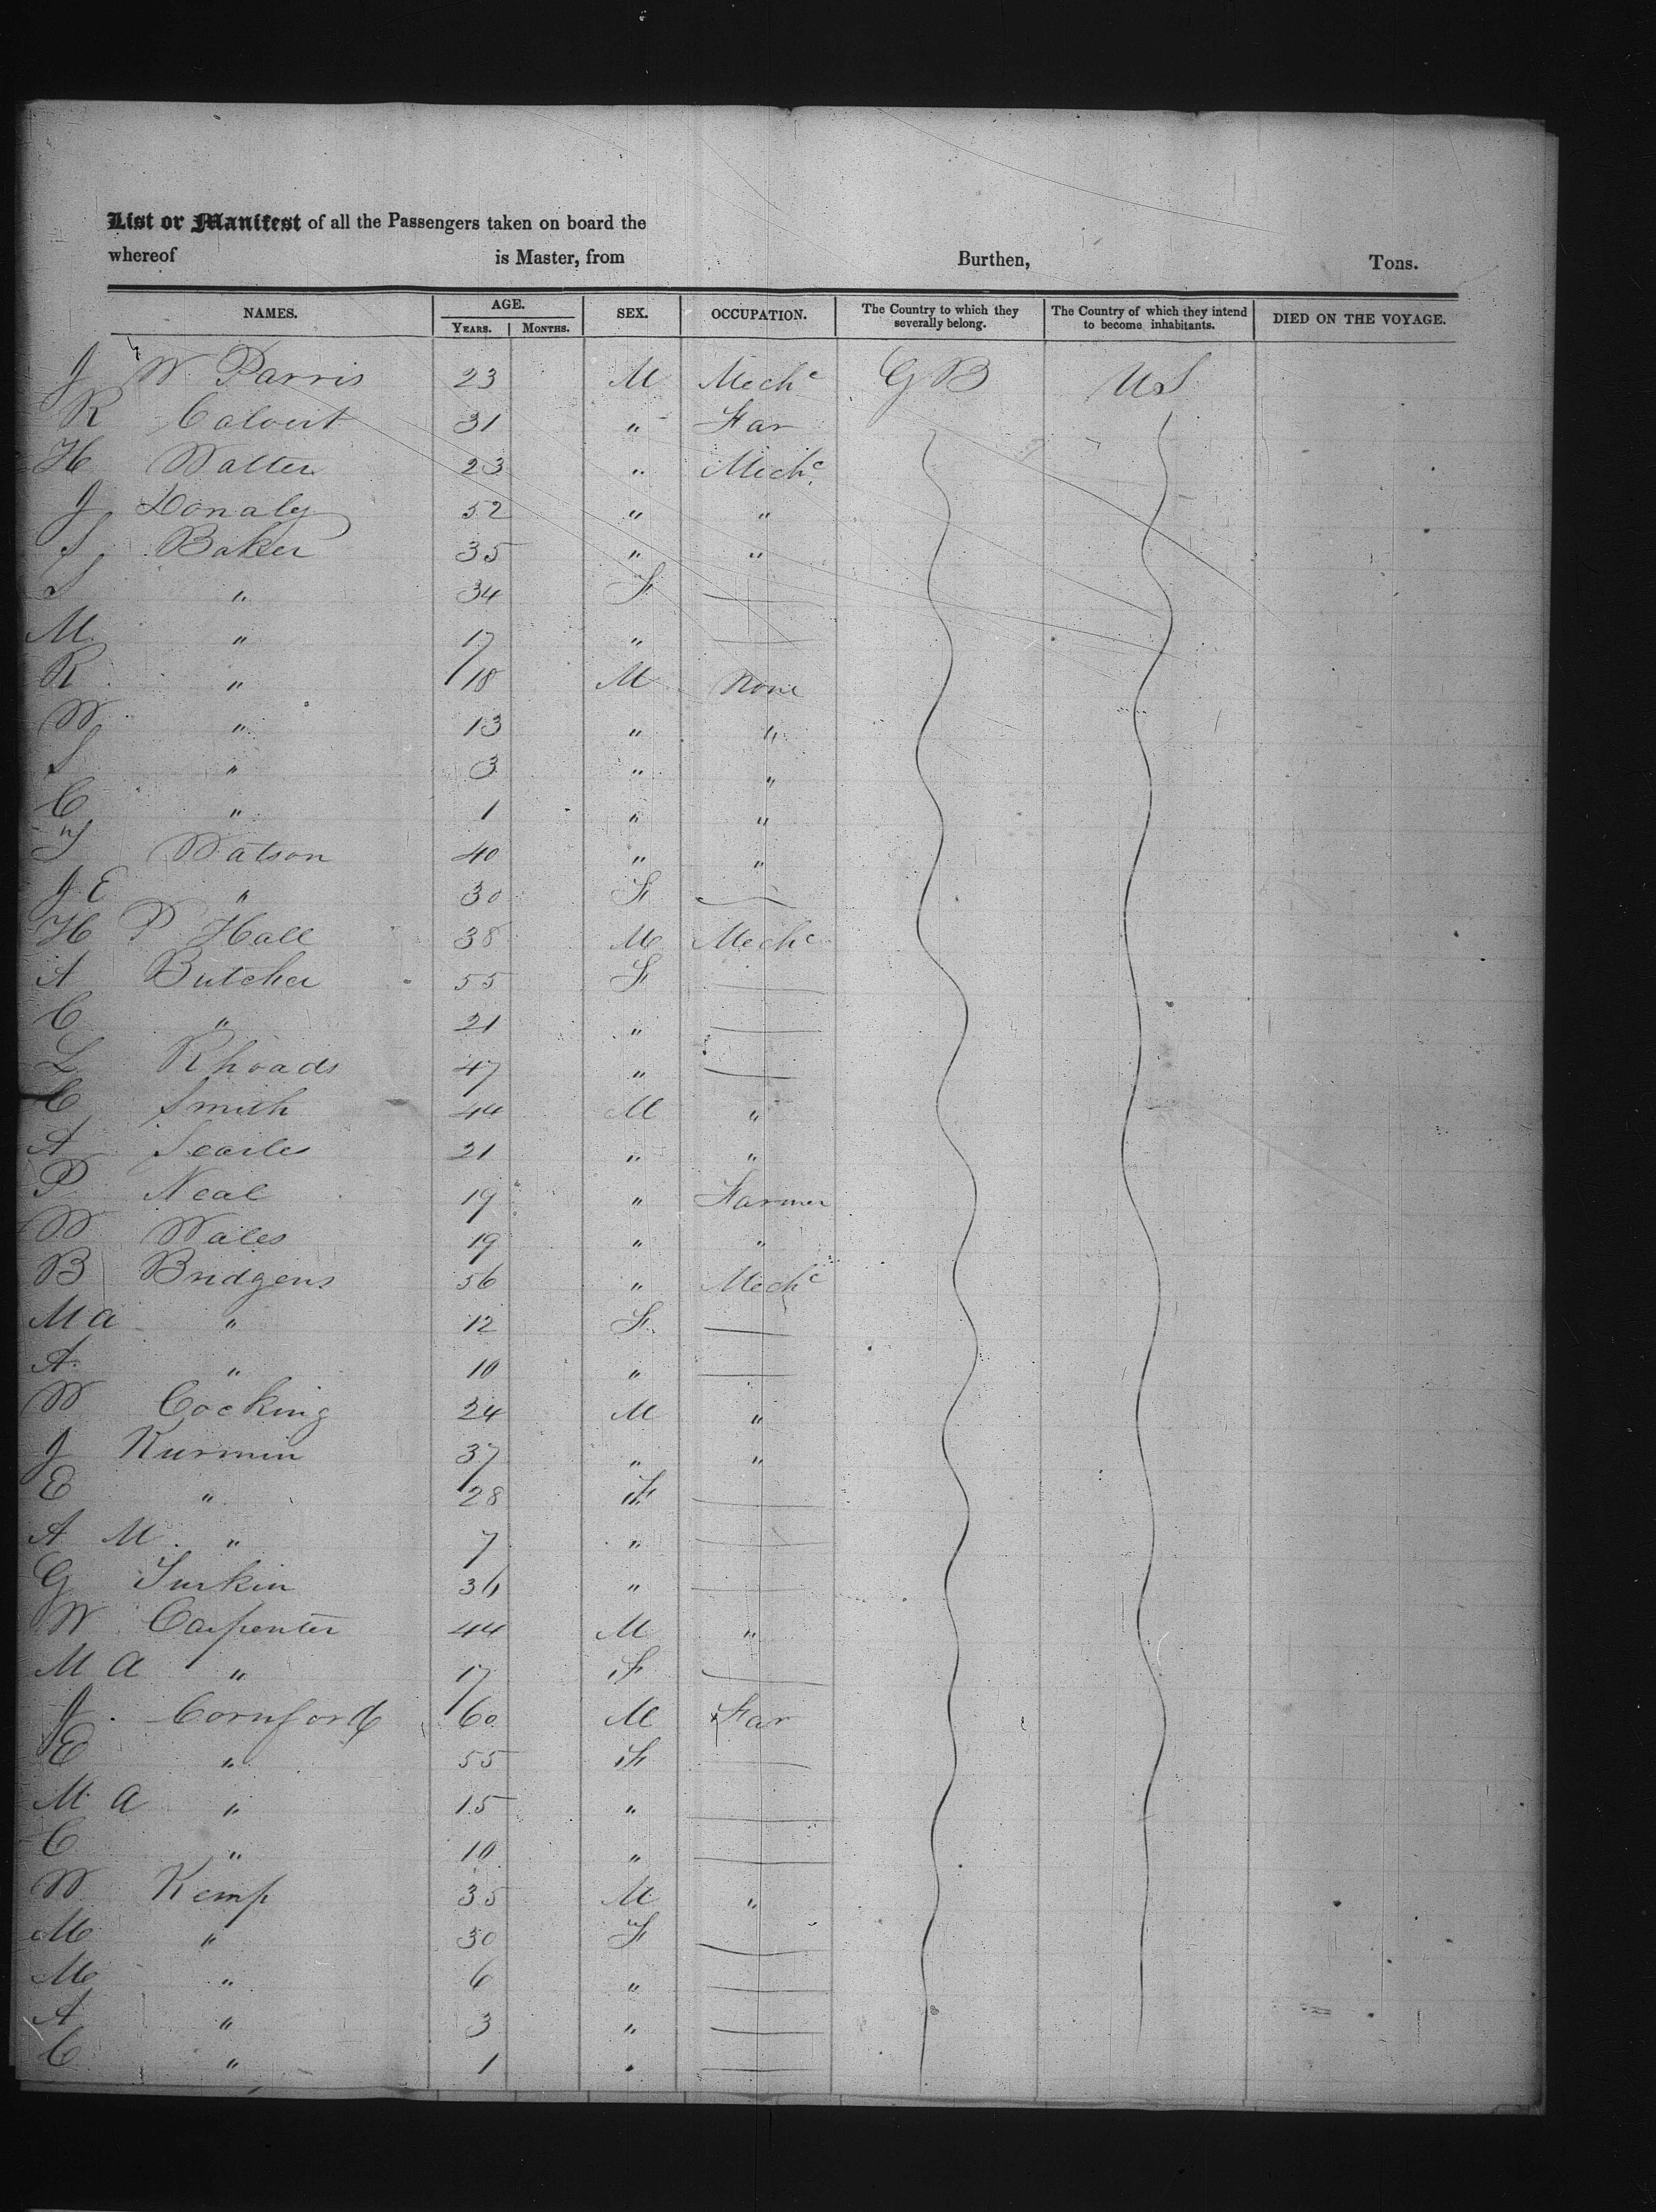 List or Manifest of all the Passengers taken on board the
whereof is Master, from Burthen, Tons.
NAMES. AGE. SEX. OCCUPATION. The Country to which they severally belong. The Country of which they intend to become inhabitants. DIED ON THE VOYAGE.
YEARS. MONTHS.
J W Parris 23 M Mechc GB US
R Calvert 31 " Far
H Walter 23 " Mechc
J Donaly 52 " "
S Baker 35 " "
S " 34 F
M " 17 "
R " 18 M None
W " 13 " "
S " 3 " "
C " 1 " "
T Watson 40 " "
J E " 30 F
H P Hall 38 M Mechc
A Butcher 55 F
C " 21 "
L Rhoads 47 "
C Smith 44 M "
A Searles 21 " "
P Neal 19 " Farmer
W Wales 19 " "
B Bridgens 56 " Mechc
M A " 12 F
A " 10 "
W Cocking 24 M "
J Kurmin 37 " "
E " 28 F
A M " 7 "
G Turkin 36 "
W Carpenter 44 M "
M A " 17 F
J Cornford 60 M Far
E " 55 F
M A " 15 "
C " 10 "
W Kemp 35 M "
M " 30 F
M " 6 "
A " 3 "
C " 1 "